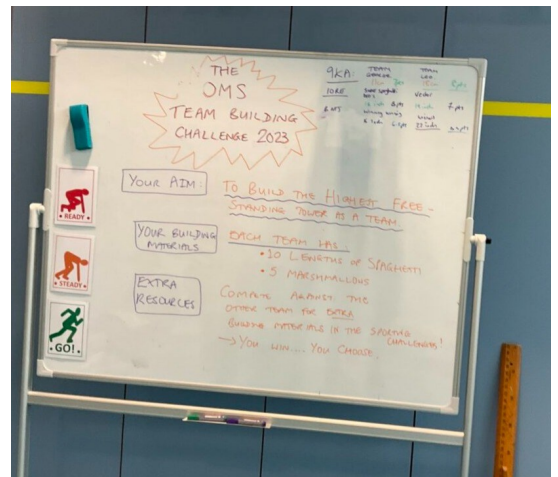 THE
OMS
TEAM BUILDING
CHALLENGE 2023
9KA:
TEAM
TEAM
YOUR AIM:
TO BUILD THE HIGHEST FREE-
STANDING TOWER AS A TEAM.
YOUR BUILDING
MATERIALS
EACH TEAM HAS...
• 20 LENGTHS OF SPAGHETTI
• 5 MARSHMALLOWS
EXTRA
RESOURCES
COMPETE AGAINST THE
OTHER TEAM FOR EXTRA
BUILDING MATERIALS IN THE SPORTING
CHALLENGES!
→ YOU WIN.... YOU CHOOSE.
• READY •
• STEADY •
• GO! •